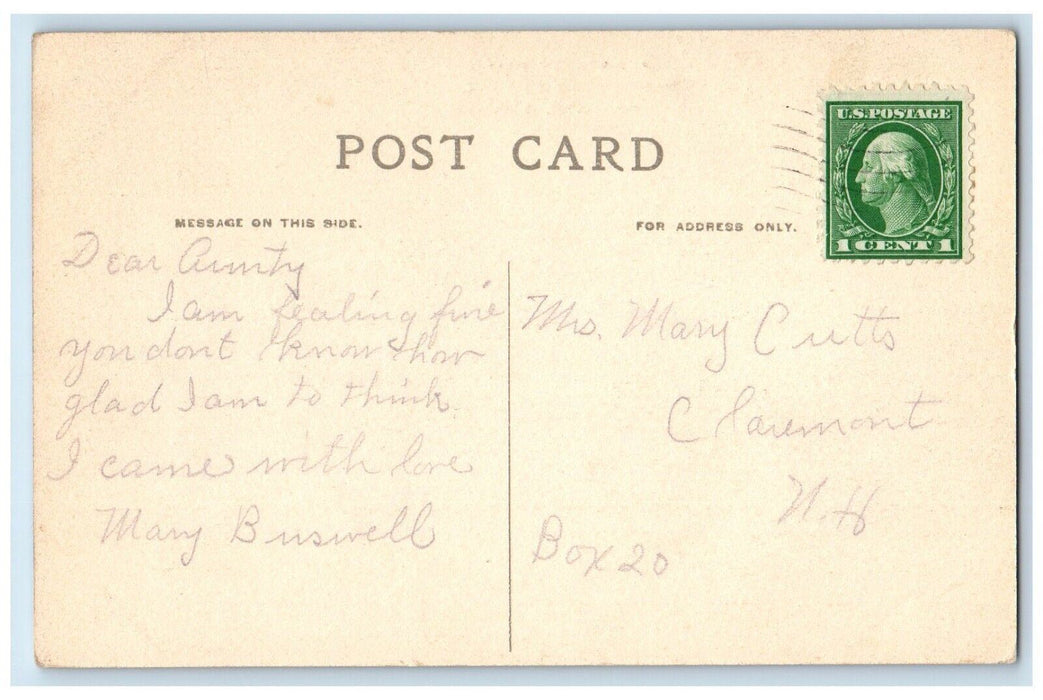 POST CARD
MESSAGE ON THIS SIDE.
FOR ADDRESS ONLY.
U.S. POSTAGE
1 CENT 1
Dear Aunty
I am fealing fine
you dont know how
glad I am to think
I came with love
Mary Buswell
Mrs. Mary Cutts
Claremont
N.H
Box 20